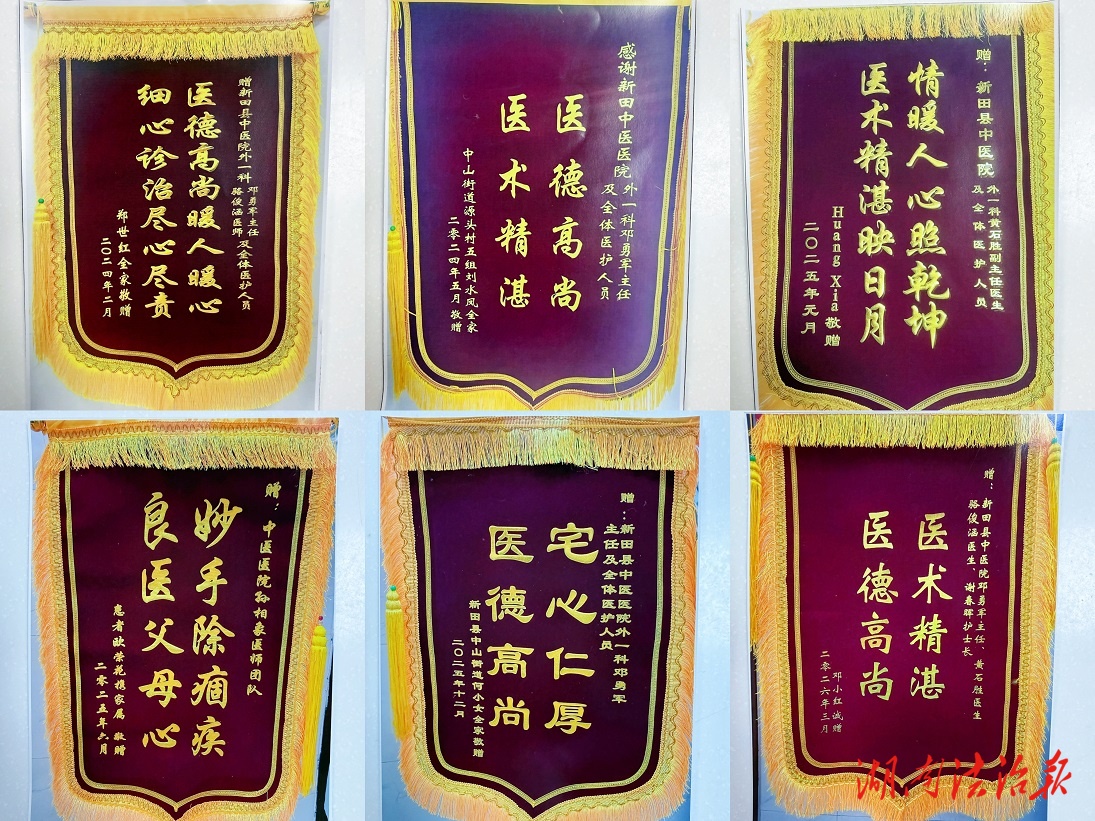 赠新田县中医院外一科
邓勇军主任
骆俊涵医师
及全体医护人员
医德高尚暖人暖心
细心诊治尽心尽责
郑世红全家敬赠
二〇二四年二月
感谢新田中医医院
外一科邓勇军主任
及全体医护人员
医德高尚
医术精湛
中山街道源头村五组刘水凤全家
二零二四年五月敬赠
赠：新田县中医院
外一科黄石胜副主任医生
及全体医护人员
情暖人心照乾坤
医术精湛映日月
Huang Xia敬赠
二〇二五年元月
赠：中医医院孙相象医师团队
妙手除痼疾
良医父母心
患者欧荣花携家属 敬赠
二零二五年六月
赠：新田县中医医院外一科邓勇军
主任及全体医护人员
宅心仁厚
医德高尚
新田县中山街道何小女全家敬赠
二〇二五年十二月
赠：新田县中医院邓勇军主任、黄石胜医生
骆俊涵医生、谢春晖护士长
医术精湛
医德高尚
邓小红诚赠
二零二六年三月
湖南法治报